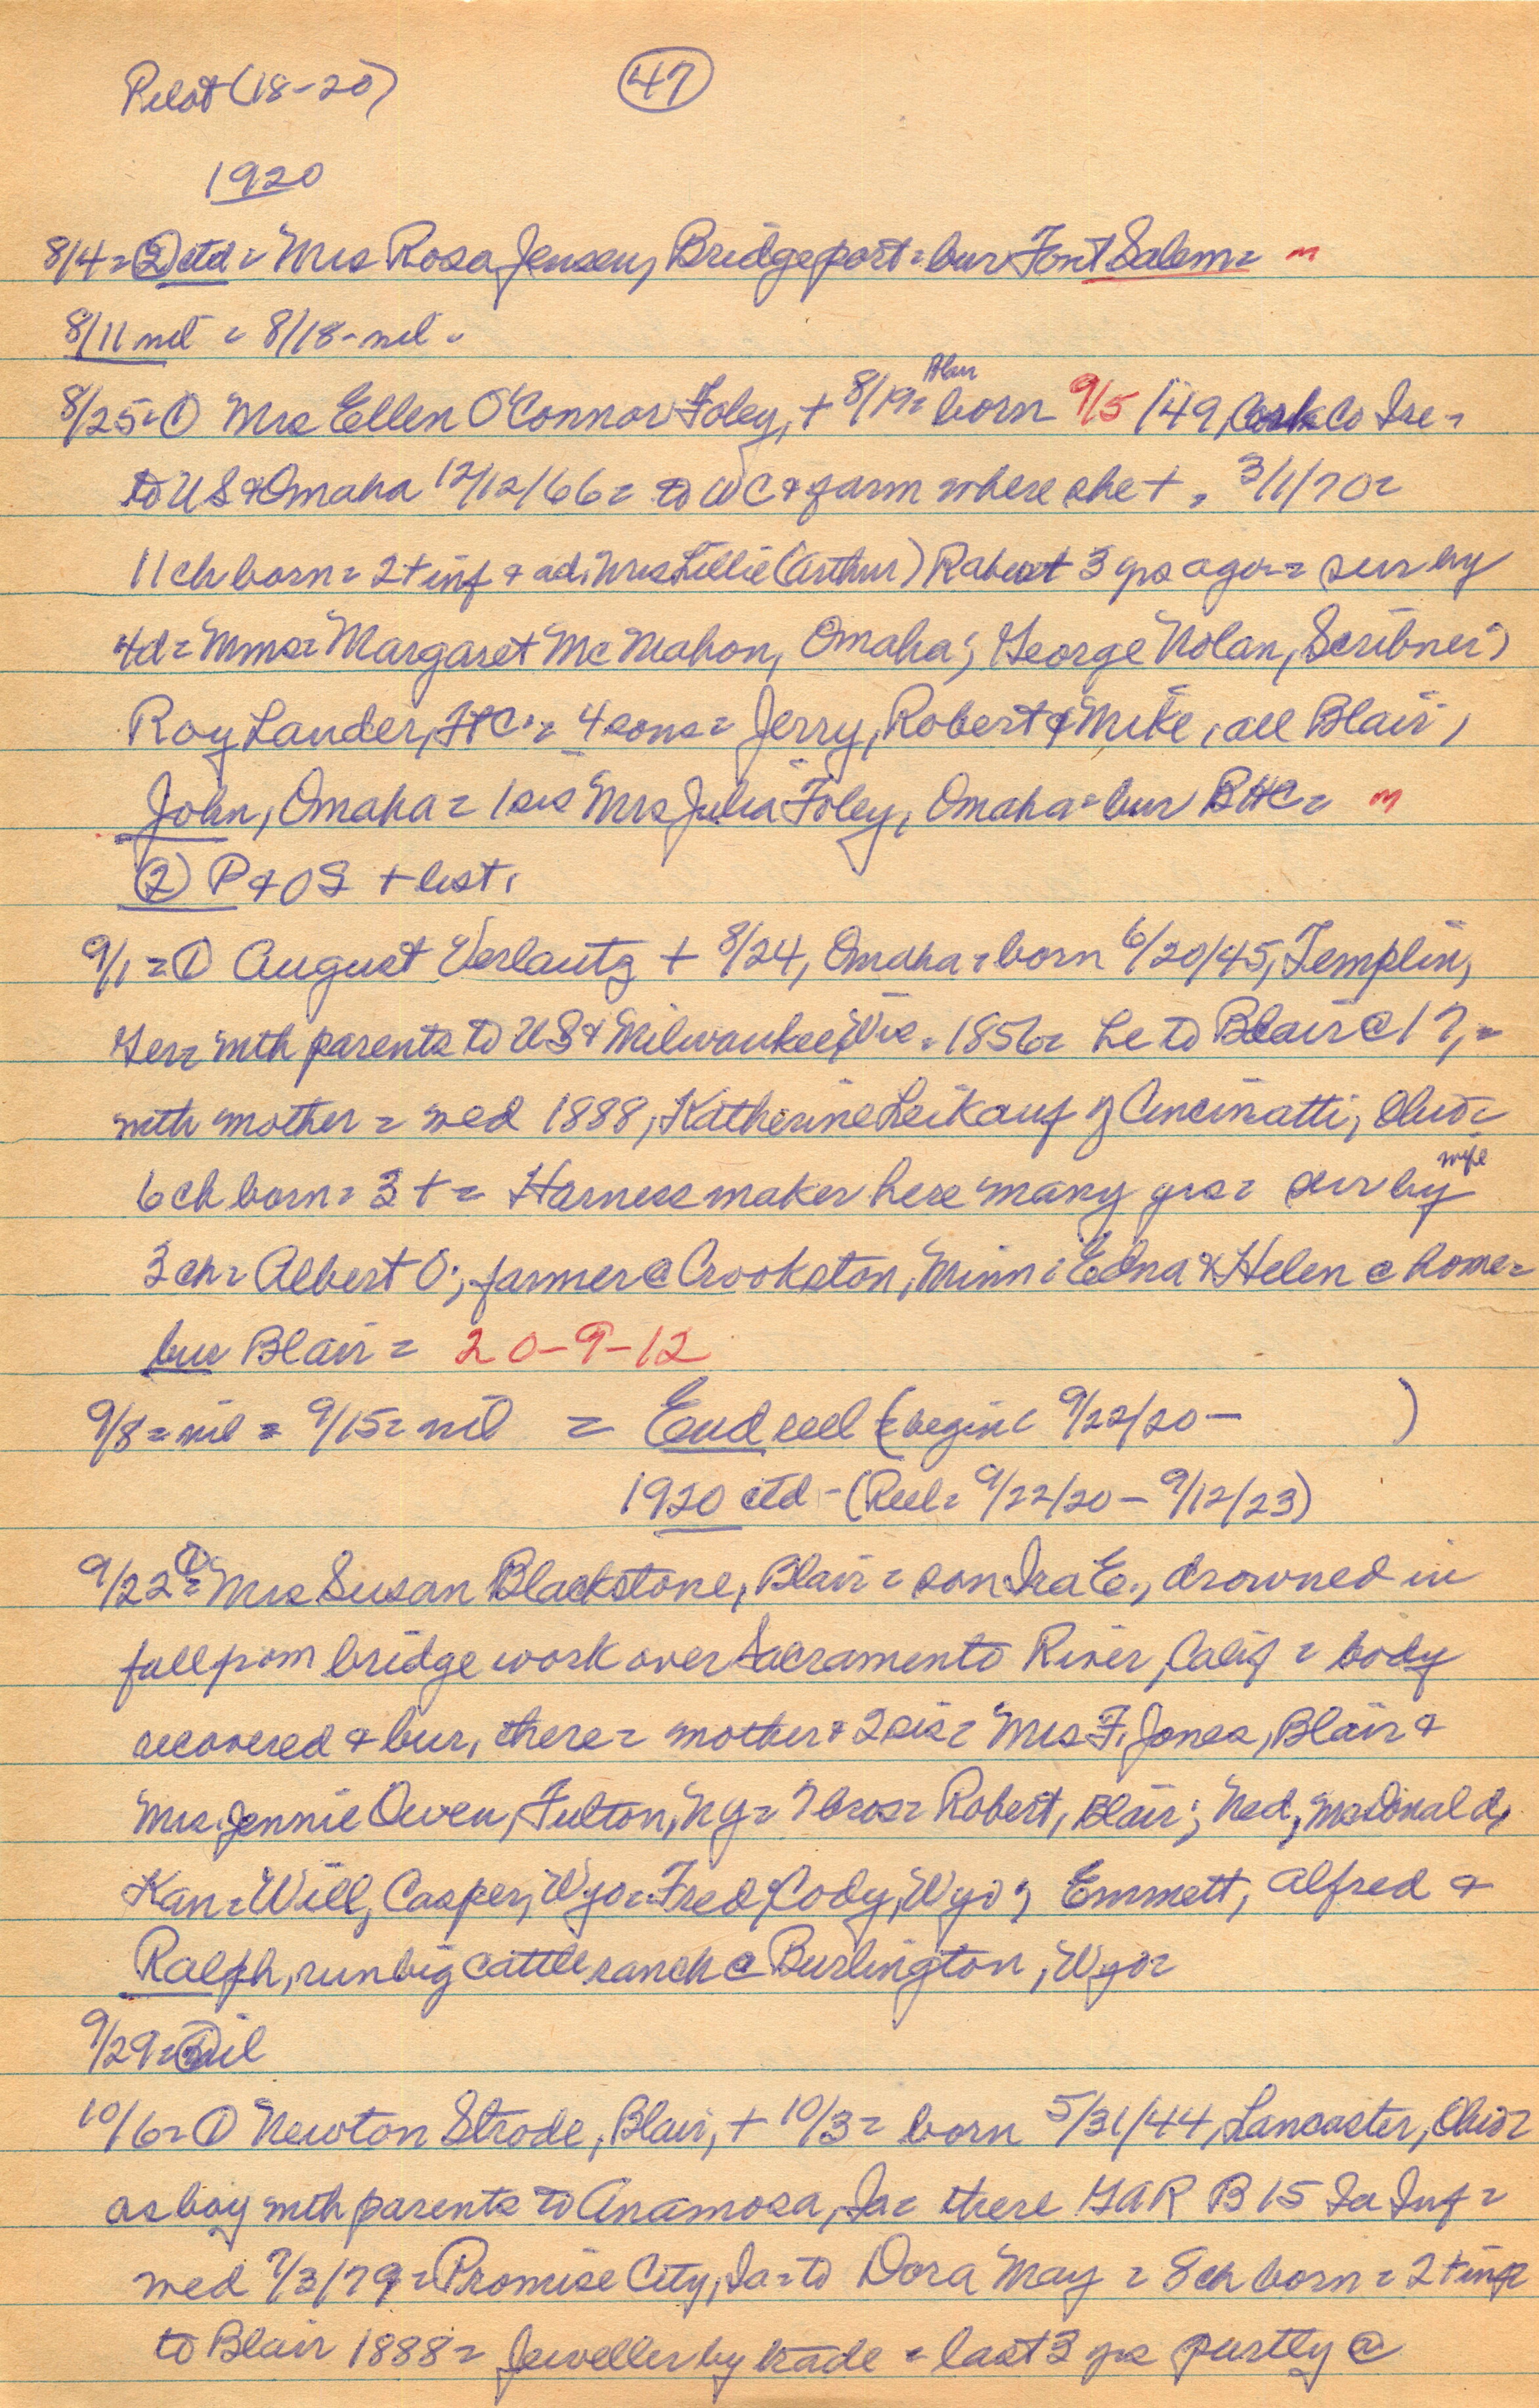 Pilot (18-20) 47
1920
8/4 = 2 ctd = Mrs Rosa Jensen, Bridgeport = bur Font Salem = m
8/11 nil = 8/18 - nil -
8/25 = 1 Mrs Ellen O'Connor Foley, + 8/19 = born 9/5 /49, Cork Co Ire =
to US & Omaha 12/12/66 = to WC & farm where she + , 3/1/70 =
11 ch born = 2 + inf & ad. Mrs Lillie (Arthur) 3 yrs ago = sur by
4d = Mms = Margaret McMahon, Omaha; George Nolan, Scribner;
Roy Lander, = 4 sons = Jerry, Robert & Mike, all Blair,
John, Omaha = 1 sis Mrs Julia Foley, Omaha = bur BHC = m
2 P & OS + list.
9/1 = 1 August Verlautz + 8/24, Omaha = born 6/20/45, Templin,
Ger = with parents to US & Milwaukee, Wis = 1856 = he to Blair @ 1?, =
with mother = wed 1888, Katherine Leikauf of Cincinatti, Ohio =
6 ch born = 3 + = Harness maker here many yrs = sur by wife
3 ch = Albert O., farmer @ Crookston, Minn; Edna & Helen @ home =
bur Blair = 20-9-12
9/8 = nil = 9/15 = nil = End reel (begin 9/22/20 - )
1920 ctd - (Reel = 9/22/20 - 9/12/23)
9/22 1 = Mrs Susan Blackstone, Blair = son Ira E., drowned in
fall from bridge work over Sacramento River, Calif = body
recovered & bur, there = mother & 2 sis = Mrs F. Jones, Blair &
Mrs. Jennie Owen, Fulton, NY = 7 bros = Robert, Blair; Ned, McDonald,
Kan = Will, Casper, Wyo = Fred, Cody, Wyo; Emmett, Alfred &
Ralph, run big cattle ranch @ Burlington, Wyo =
9/29 = nil
10/6 = 1 Newton Strode, Blair, + 10/3 = born 5/31/44, Lancaster, Ohio =
as boy with parents to Anamosa, Ia = there GAR B 15 Ia Inf =
wed 7/3/79 = Promise City, Ia = to Dora May = 8 ch born = 2 + inf =
to Blair 1888 = Jeweller by trade = last 3 yrs partly @